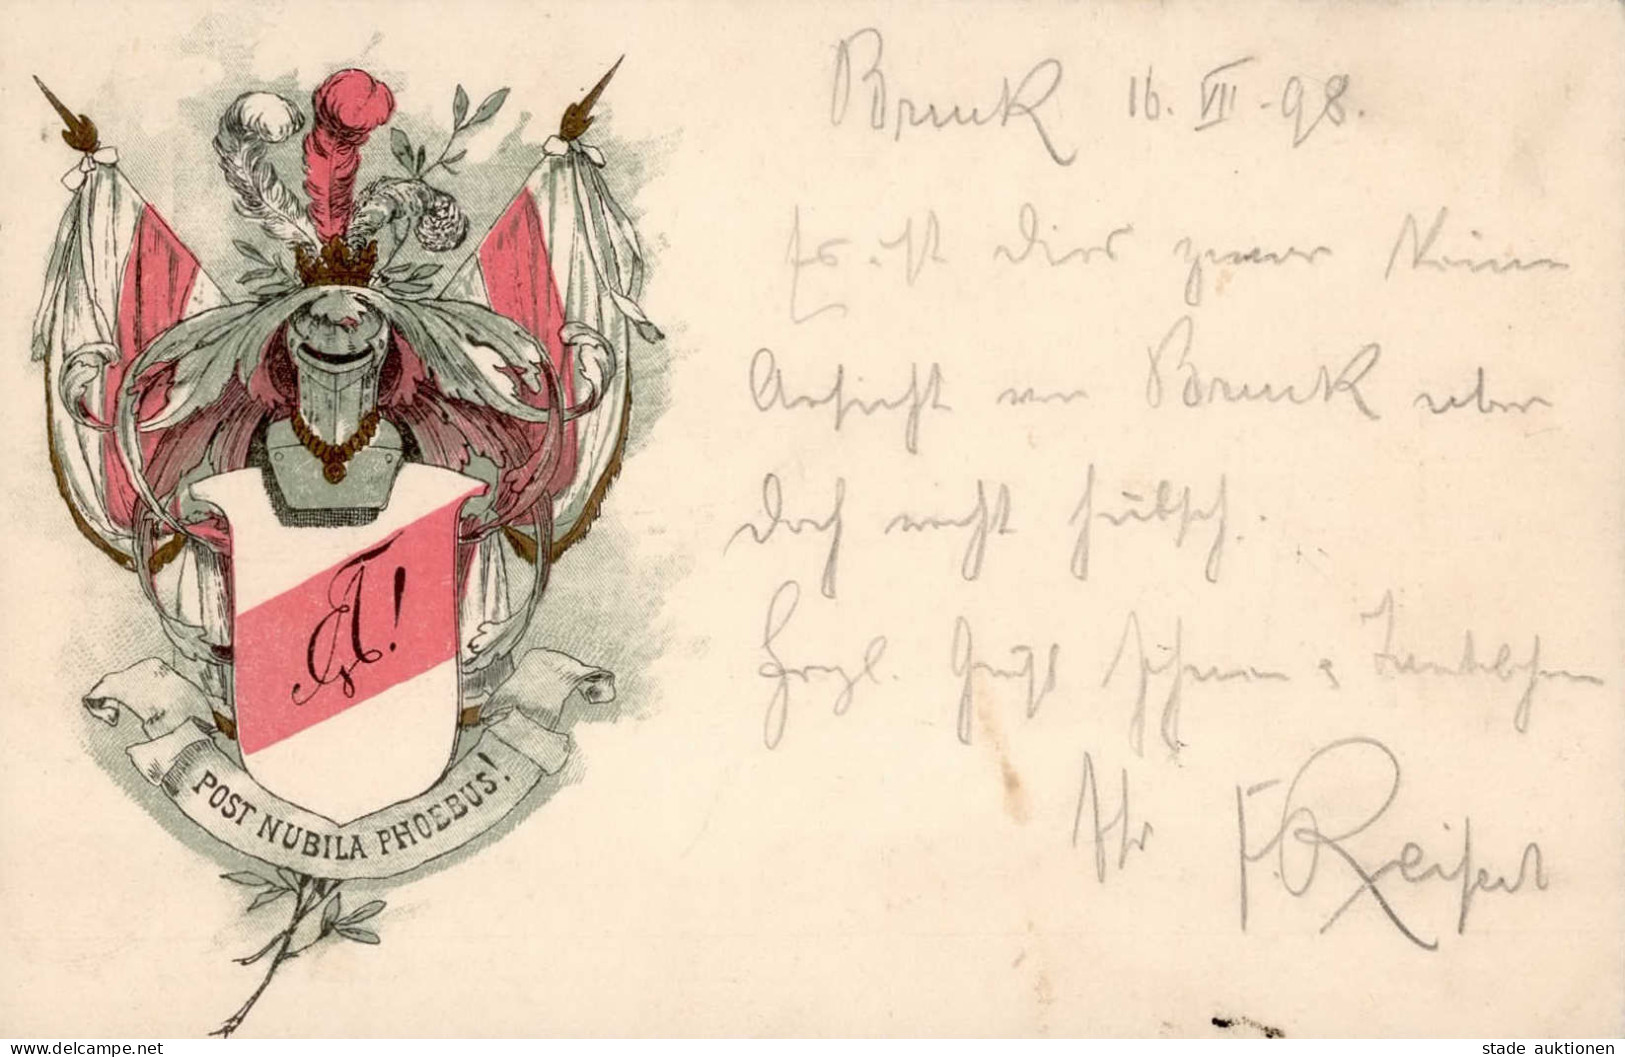 Bruck 16. VIII. 98.
Es ist dies zwar keine
Ansicht von Bruck aber
doch recht hübsch.
Herzl. Gruß
Ihr F. Reisert
A!
POST NUBILA PHOEBUS!
www.delcampe.net
stade auktionen